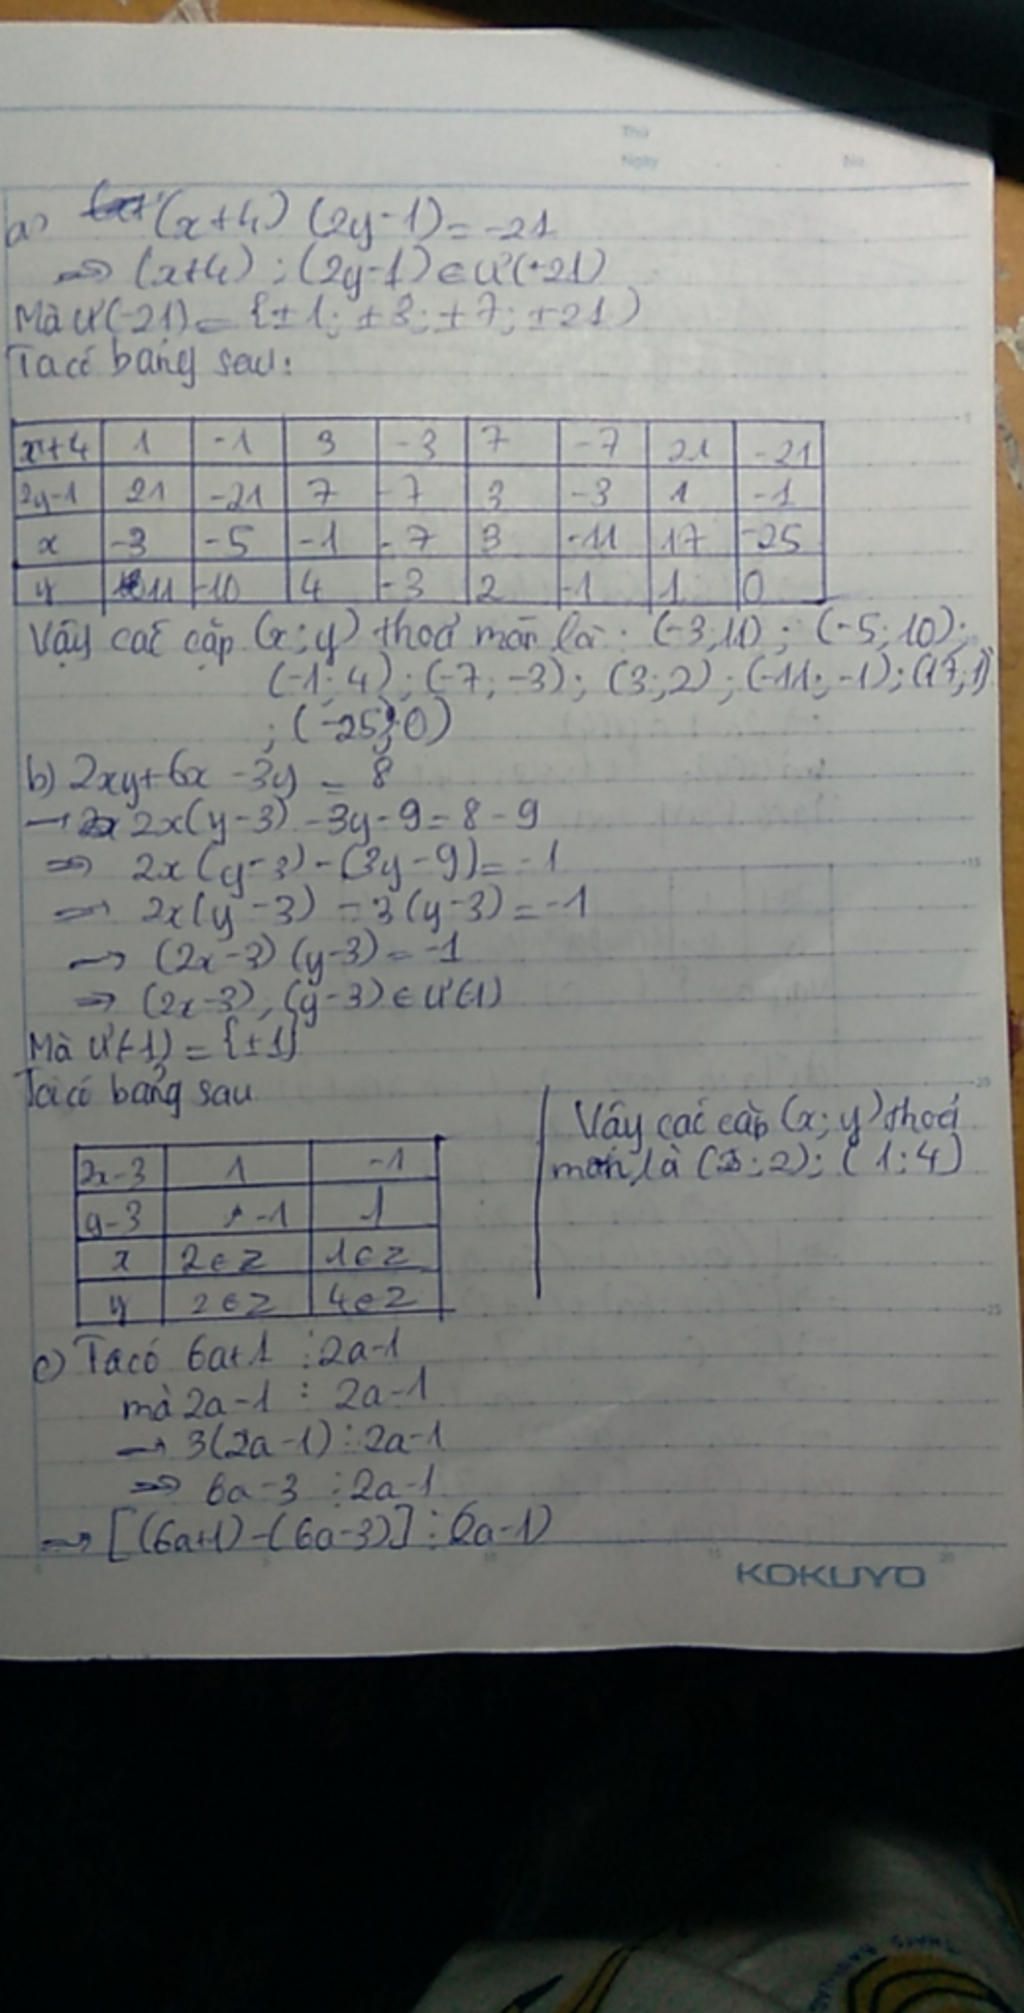 Thứ
Ngày . . No.
a) (x+4) (2y-1) = -21
=> (x+4) ; (2y-1) ∈ Ư(-21)
Mà Ư(-21) = {±1; ±3; ±7; ±21)
Ta có bảng sau:
x+4 1 -1 3 -3 7 -7 21 -21
2y-1 21 -21 7 -7 3 -3 1 -1
x -3 -5 -1 -7 3 -11 17 -25
y 11 -10 4 -3 2 -1 1 0
Vậy các cặp (x;y) thoả mãn là: (-3;11) ; (-5;10);
(-1;4) ; (-7;-3); (3;2) ; (-11;-1); (17;1)
; (-25;0)
b) 2xy+6x -3y = 8
→ 2x(y-3) -3y-9=8-9
=> 2x(y-3)-(3y-9)=-1
=> 2x(y-3) -3(y-3)=-1
→ (2x-3) (y-3)=-1
=> (2x-3), (y-3) ∈ Ư(-1)
Mà Ư(-1) = {±1}
Ta có bảng sau
2x-3 1 -1
y-3 -1 1
x 2∈Z 1∈Z
y 2∈Z 4∈Z
Vậy các cặp (x;y) thoả
mãn là (2;2); (1;4)
c) Ta có 6a+1 ⋮ 2a-1
mà 2a-1 ⋮ 2a-1
→ 3(2a-1) ⋮ 2a-1
=> 6a-3 ⋮ 2a-1
=> [(6a+1)-(6a-3)] ⋮ (2a-1)
KOKUYO